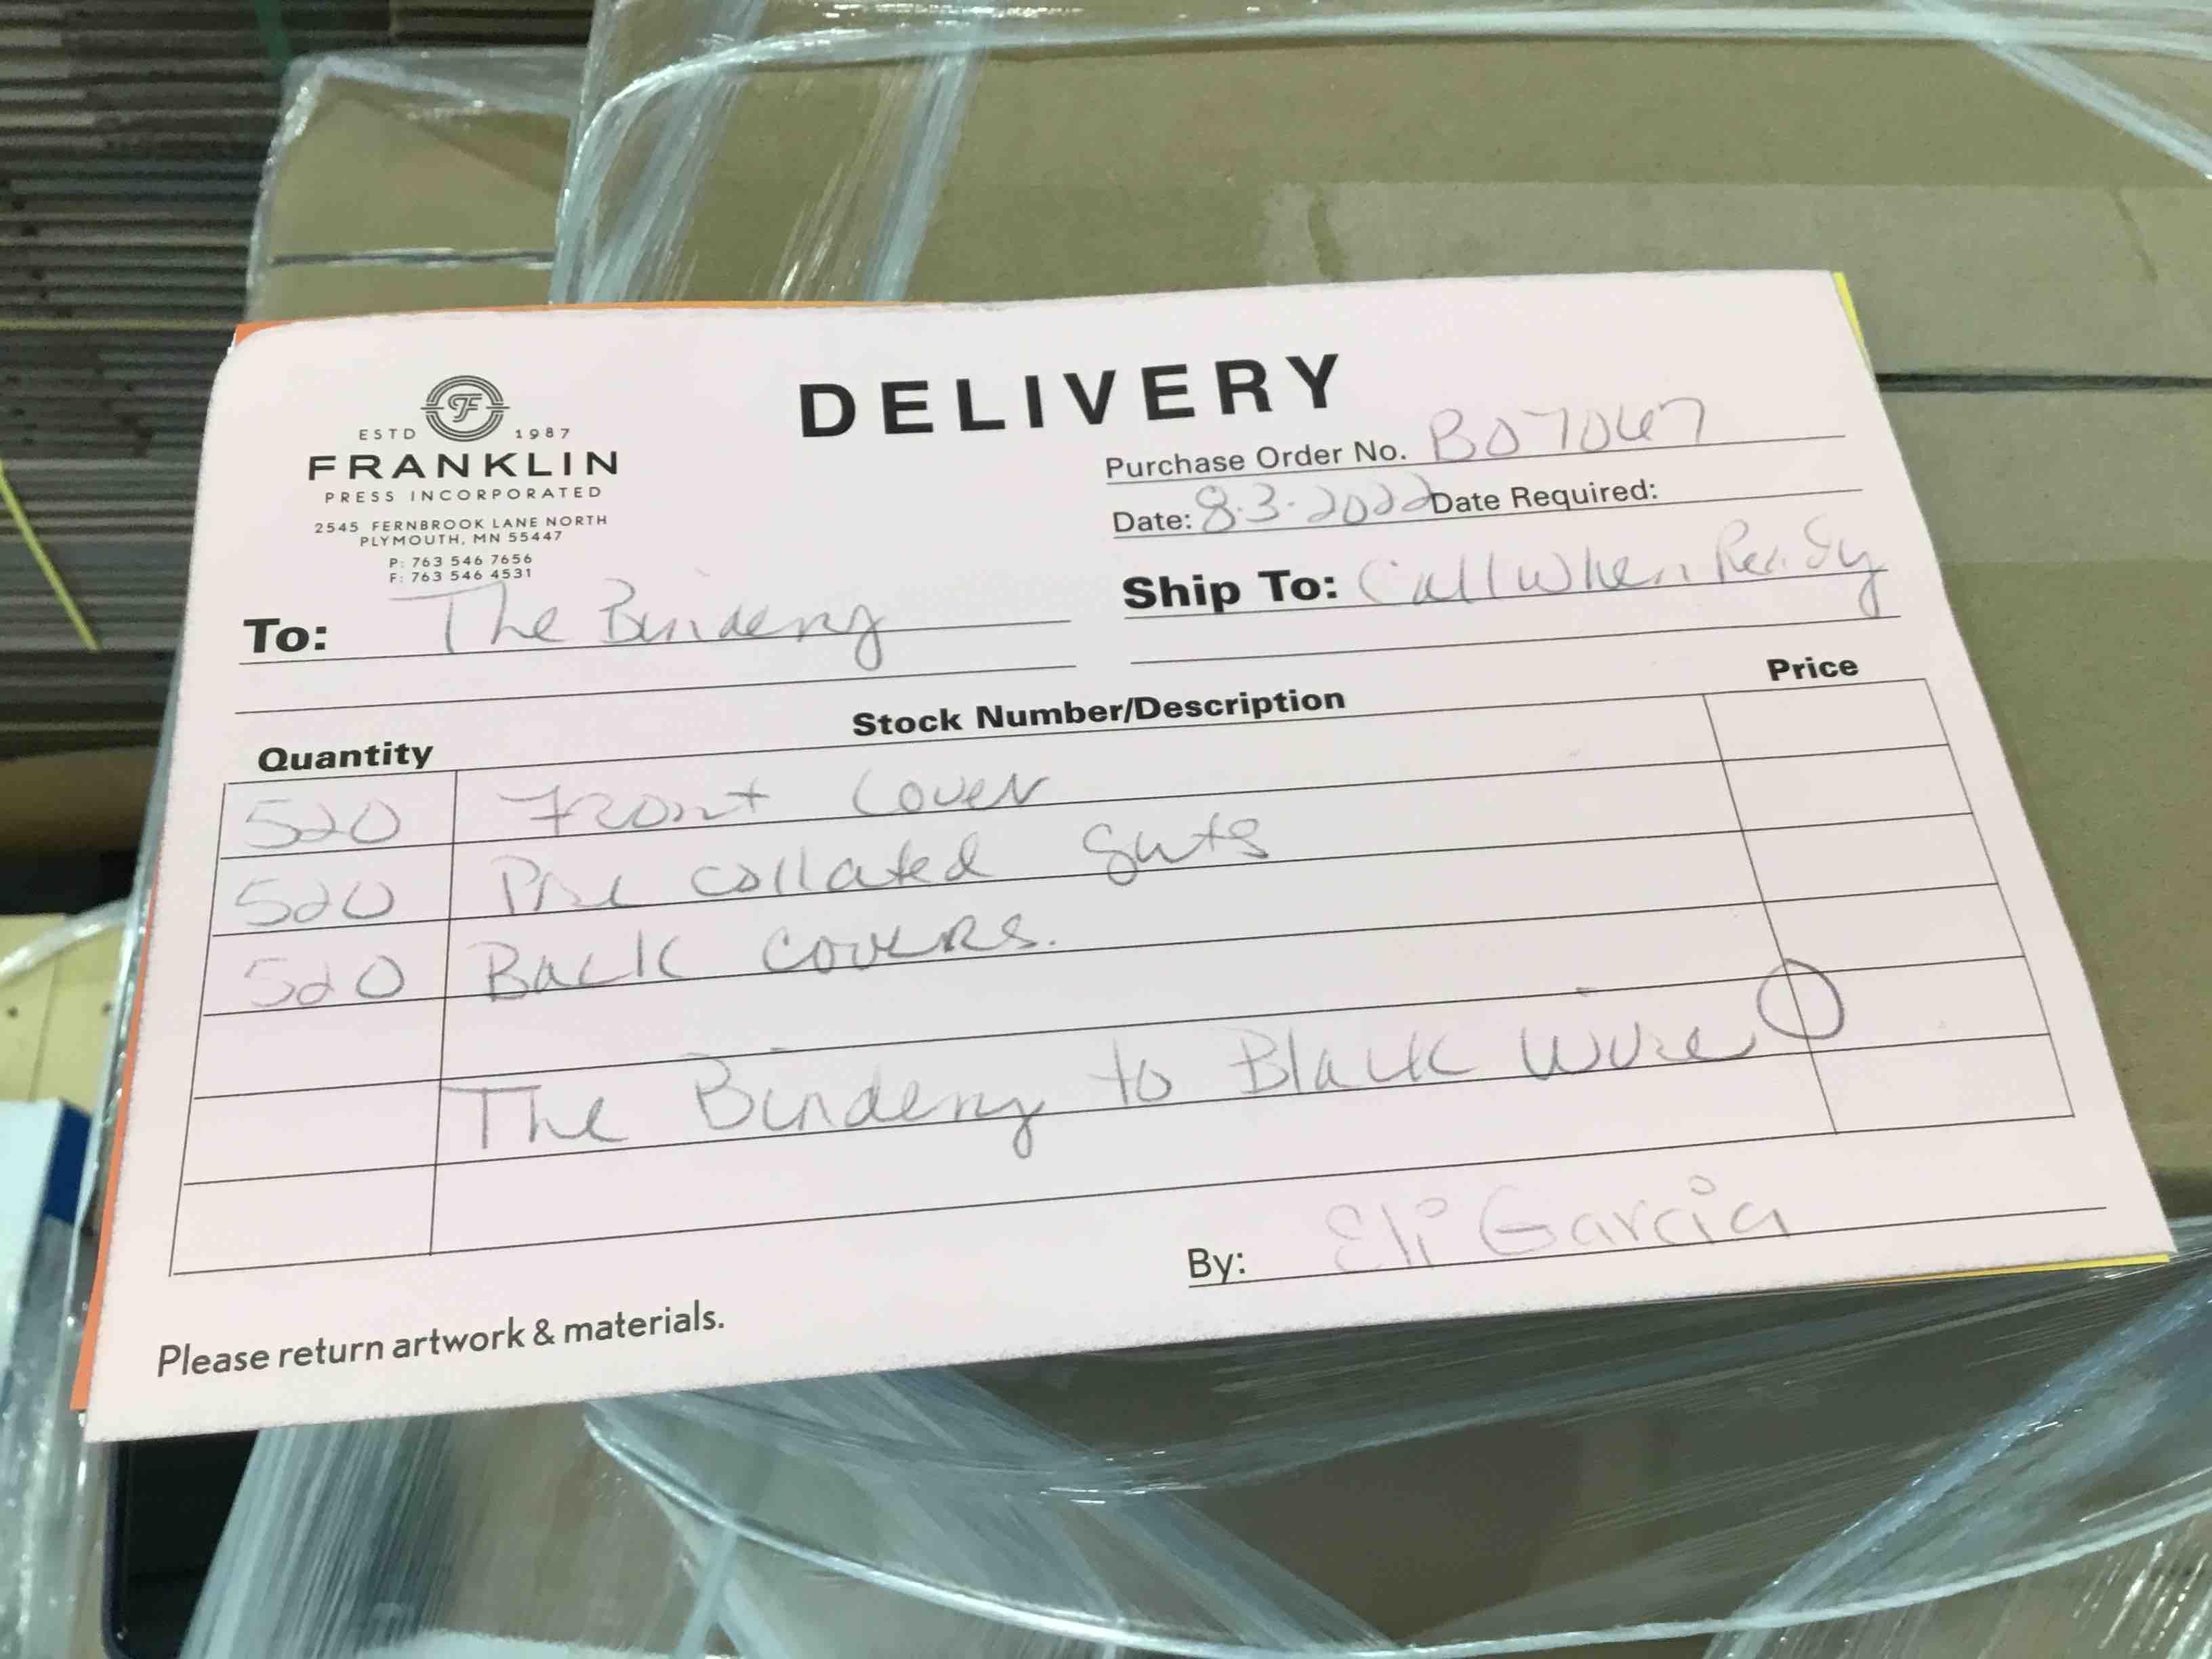 DELIVERY
ESTD 1987
FRANKLIN
PRESS INCORPORATED
2545 FERNBROOK LANE NORTH
PLYMOUTH, MN 55447
P: 763 546 7656
F: 763 546 4531
Purchase Order No. B07067
Date: 8.3.2022 Date Required:
To: The Bindery
Ship To: Call When Ready
Quantity Stock Number/Description Price
520 Front Cover
520 Pre collated guts
520 Back covers.
The Bindery to Black Wire O
By: Eli Garcia
Please return artwork & materials.